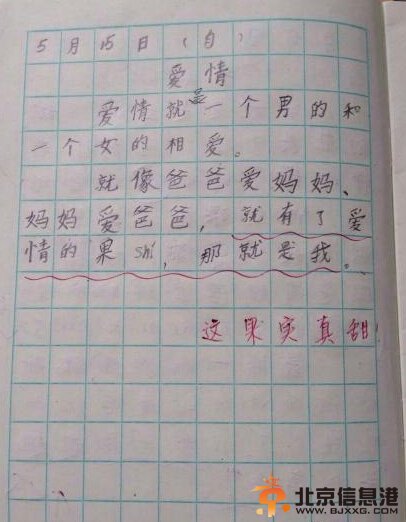 5月15日(自)
爱情
爱情就是一个男的和
一个女的相爱。
就像爸爸爱妈妈、
妈妈爱爸爸，就有了爱
情的果shí，那就是我。
这果实真甜
北京信息港
WWW.BJXXG.COM